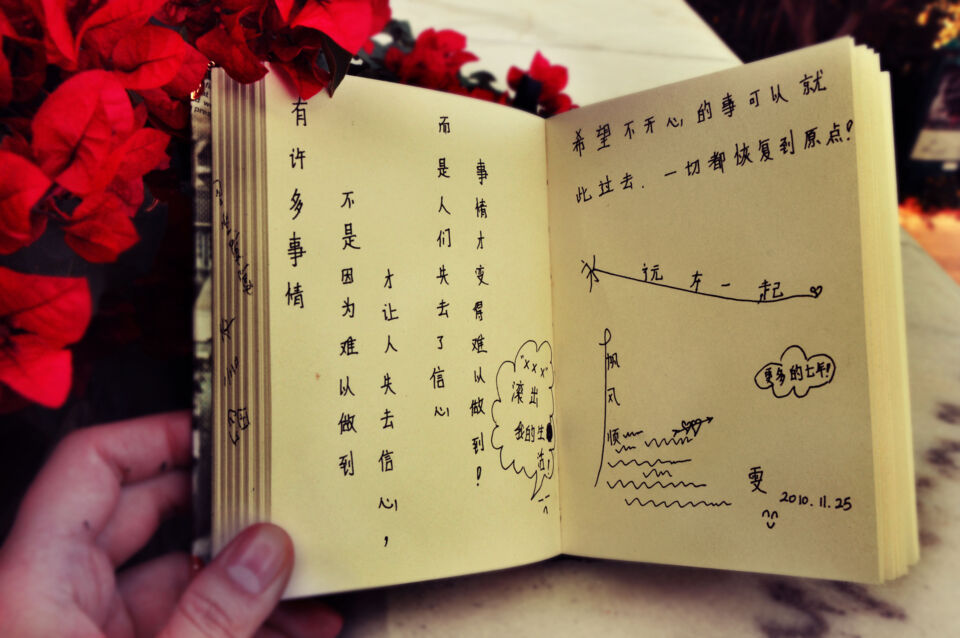 有许多事情
不是因为难以做到
才让人失去信心，
而是人们失去了信心
事情才变得难以做到！
"xxx"
滚出
我的生
活！
希望不开心的事可以就
此过去．一切都恢复到原点！
永远在一起
帆风顺
更多的七年！
雯
2010.11.25